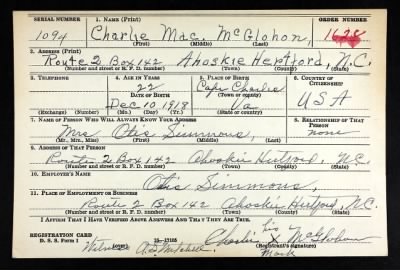 SERIAL NUMBER 1. NAME (Print) ORDER NUMBER
1094 Charlie Mac. McGlohon, 1628
(First) (Middle) (Last)
2. ADDRESS (Print)
Route 2 Box 142 Ahoskie Hertford, N.C.
(Number and street or R. F. D. number) (Town) (County) (State)
3. TELEPHONE 4. AGE IN YEARS 5. PLACE OF BIRTH 6. COUNTRY OF CITIZENSHIP
22 Cape Charles
DATE OF BIRTH (Town or county)
Dec 10 1918 Va USA
(Exchange) (Number) (Mo.) (Day) (Yr.) (State or country)
7. NAME OF PERSON WHO WILL ALWAYS KNOW YOUR ADDRESS 8. RELATIONSHIP OF THAT PERSON
Mrs Otis Simmons, none
(Mr., Mrs., Miss) (First) (Middle) (Last)
9. ADDRESS OF THAT PERSON
Route 2 Box 142 Ahoskie Hertford, N.C.
(Number and street or R. F. D. number) (Town) (County) (State)
10. EMPLOYER'S NAME
Otis Simmons,
11. PLACE OF EMPLOYMENT OR BUSINESS
Route 2 Box 142 Ahoskie Hertford, N.C.
(Number and street or R. F. D. number) (Town) (County) (State)
I AFFIRM THAT I HAVE VERIFIED ABOVE ANSWERS AND THAT THEY ARE TRUE.
REGISTRATION CARD
D. S. S. Form 1 16—17105
Witness Mitchell Charlie his X mark McGlohon
(Registrant's signature)